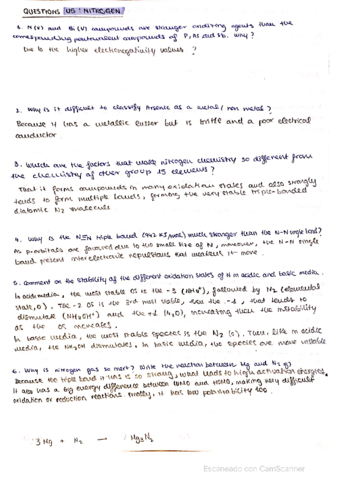 QUESTIONS U5: NITROGEN
1. N(V) and Bi(V) compounds are stronger oxidizing agents than the
corresponding pentavalent compounds of P, As and Sb. Why?
Due to the higher electronegativity values?
2. Why is it difficult to classify Arsenic as a metal / non metal?
Because it has a metallic luster but is brittle and a poor electrical
conductor.
3. Which are the factors that make nitrogen chemistry so different from
the chemistry of other group 15 elements?
That it forms compounds in many oxidation states and also strongly
tends to form multiple bonds, forming the very stable triple-bonded
diatomic N2 molecule
4. Why is the N≡N triple bond (942 KJ/mol) much stronger than the N-N single bond?
As p-orbitals are favored due to the small size of N, moreover, the N-N single
bond present interelectronic repulsions that weaken it more.
5. Comment on the stability of the different oxidation states of N in acidic and basic media.
In acidic media, the most stable OS is the -3 (NH4+), followed by N2 (elemental
state, 0). The -2 OS is the 3rd most stable, then the -1, that tends to
dismutate (NH3OH+) and the +1 (N2O), increasing then the instability
as the OS increases.
In basic media, the most stable species is the N2 (0). Then, like in acidic
media, the NH2OH dismutates. In basic media, the species are more stable
6. Why is nitrogen gas so inert? Write the reaction between Mg and N2(g)
Because the triple bond it has is so strong, what leads to high activation energies.
It also has a big energy difference between LUMO and HOMO, making very difficult
oxidation or reduction reactions. Finally, it has low polarizability too.
3 Mg + N2 → Mg3N2
Escaneado con CamScanner